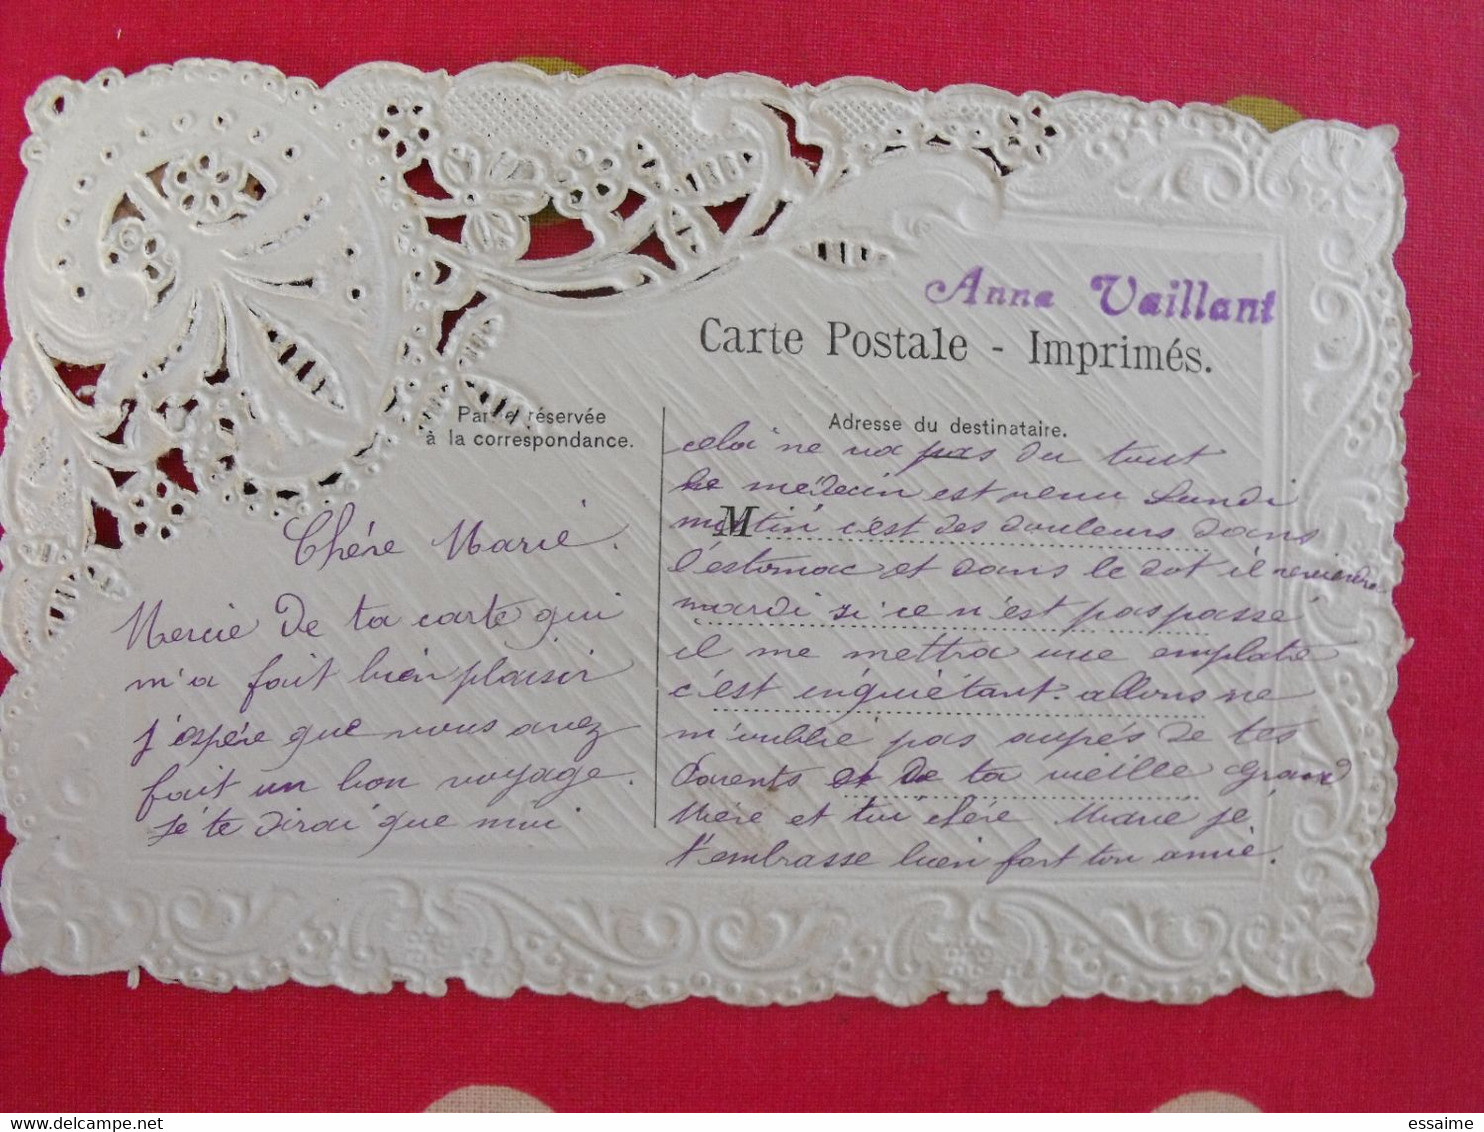 Anna Vaillant
Carte Postale - Imprimés.
Partie réservée
à la correspondance.
Adresse du destinataire.
M
Chére Marie.
Mercie de ta carte qui
m'a fait bien plaisir
j'espére que vous avez
fait un bon voyage.
Je te dirai que moi
cela ne va pas du tout
le médecin est venu Lundi
matin c'est des douleurs dans
l'estomac et dans le dot il reviendra
mardi si ce n'est pas passé
il me mettra une emplatre
c'est inquiétant. allons ne
m'oublie pas auprés de tes
Parents et de ta vieille Grand
Mére et toi chére Marie je
t'embrasse bien fort ton amie.
delcampe.net
essaime